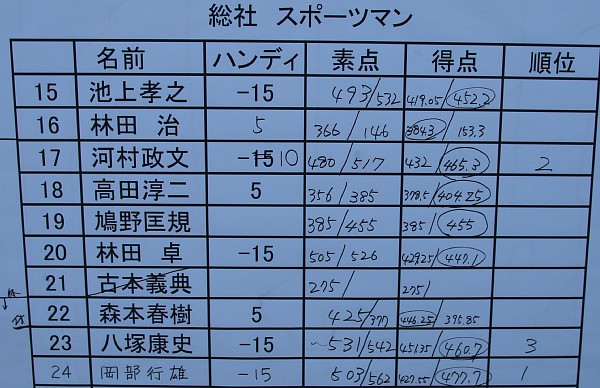 総社 スポーツマン
名前 ハンディ 素点 得点 順位
15 池上孝之 -15 493/532 419.05/452.2
16 林田 治 5 366/146 384.3/153.3
17 河村政文 -15 10 480/517 432/465.3 2
18 高田淳二 5 356/385 378.5/404.25
19 鳩野匡規 385/455 385/455
20 林田 卓 -15 505/526 429.25/447.1
21 古本義典 275/ 275/
22 森本春樹 5 425/377 446.25/395.85
23 八塚康史 -15 531/542 451.35/460.7 3
24 岡部行雄 -15 503/562 427.55/477.7 1